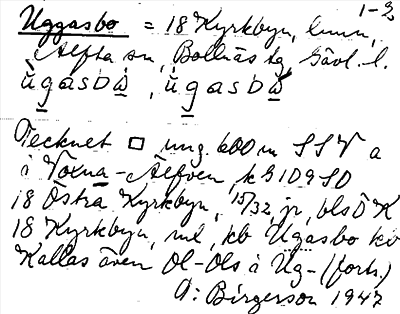 1-2
Uggasbo = 18 Kyrkbyn, hmn,
Alfta sn, Bollnäs tg Gävl. l.
ŭgasbω, ŭgasbω
Tecknet □ ung. 600 m SSV a
à Voxna-Älfven, k G 109 SO
18 Östra Kyrkbyn, 15/32, jr, bls Ö K
18 Kyrkbyn, ml, kb Ugasbo kv
Kallas även Ol-Ols å Ug- (forts.)
A: Birgerson 1947